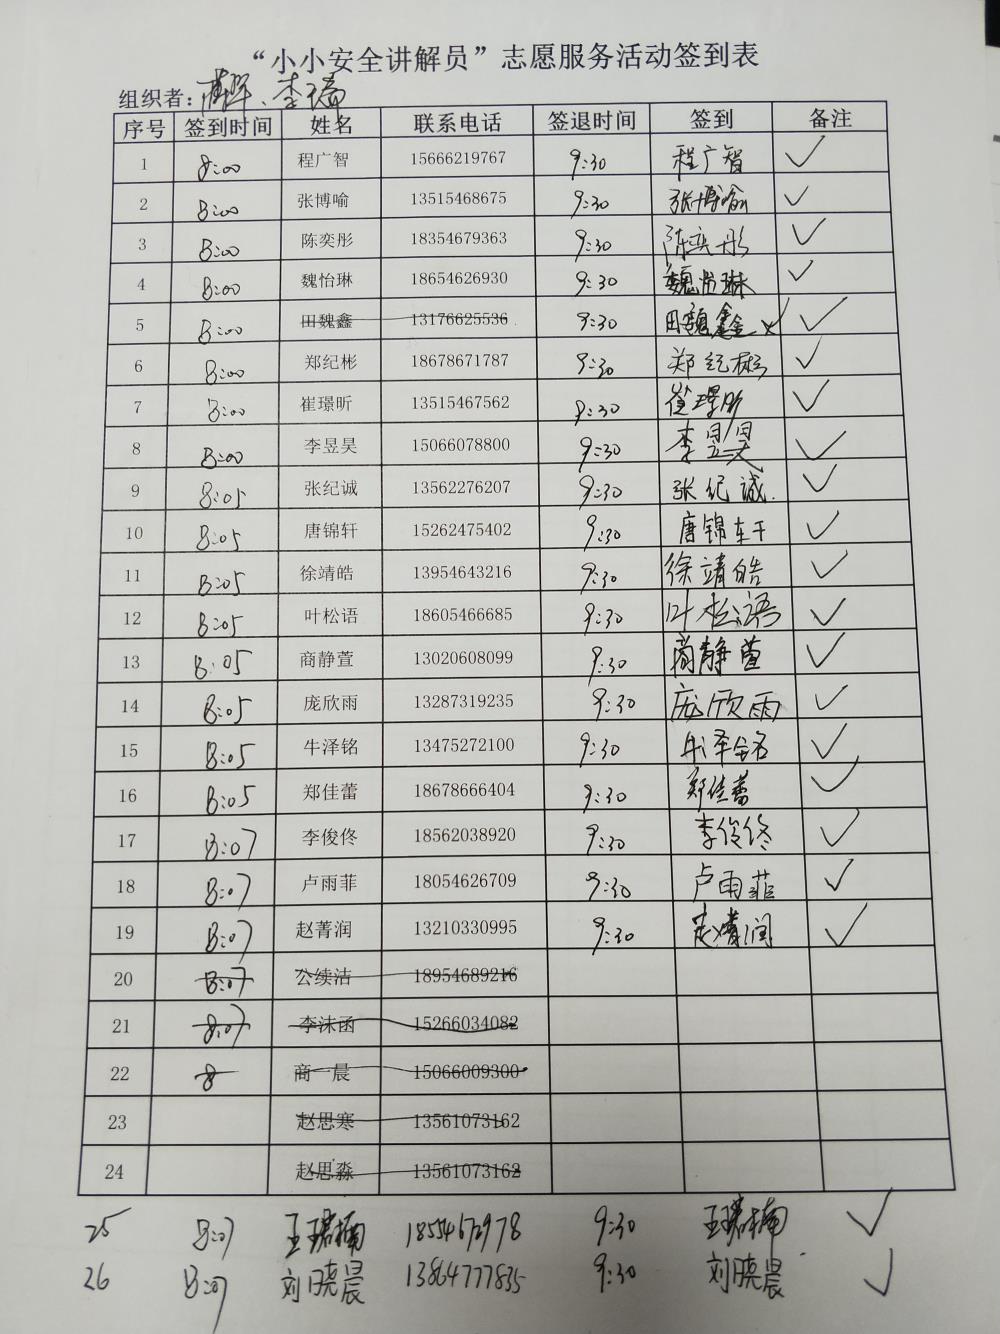 “小小安全讲解员”志愿服务活动签到表
组织者： 、李瑞
序号 签到时间 姓名 联系电话 签退时间 签到 备注
1 8:00 程广智 15666219767 9:30 程广智 ✓
2 8:00 张博喻 13515468675 9:30 张博喻 ✓
3 8:00 陈奕彤 18354679363 9:30 陈奕彤 ✓
4 8:00 魏怡琳 18654626930 9:30 魏怡琳 ✓
5 8:00 田魏鑫 13176625536 9:30 田魏鑫 ✓
6 8:00 郑纪彬 18678671787 9:30 郑纪彬 ✓
7 8:00 崔璟昕 13515467562 9:30 崔璟昕 ✓
8 8:00 李昱昊 15066078800 9:30 李昱昊 ✓
9 8:05 张纪诚 13562276207 9:30 张纪诚 ✓
10 8:05 唐锦轩 15262475402 9:30 唐锦轩 ✓
11 8:05 徐靖皓 13954643216 9:30 徐靖皓 ✓
12 8:05 叶松语 18605466685 9:30 叶松语 ✓
13 8:05 商静萱 13020608099 9:30 商静萱 ✓
14 8:05 庞欣雨 13287319235 9:30 庞欣雨 ✓
15 8:05 牛泽铭 13475272100 9:30 牛泽铭 ✓
16 8:05 郑佳蕾 18678666404 9:30 郑佳蕾 ✓
17 8:07 李俊佟 18562038920 9:30 李俊佟 ✓
18 8:07 卢雨菲 18054626709 9:30 卢雨菲 ✓
19 8:07 赵菁润 13210330995 9:30 赵菁润 ✓
20 8:07 公续洁 18954689216
21 8:07 李沫函 15266034082
22 8 商一晨 15066009300
23 赵思寒 13561073162
24 赵思淼 13561073162
25 8:07 王珺楠 18554672978 9:30 王珺楠 ✓
26 8:07 刘晓晨 13864777835 9:30 刘晓晨 ✓